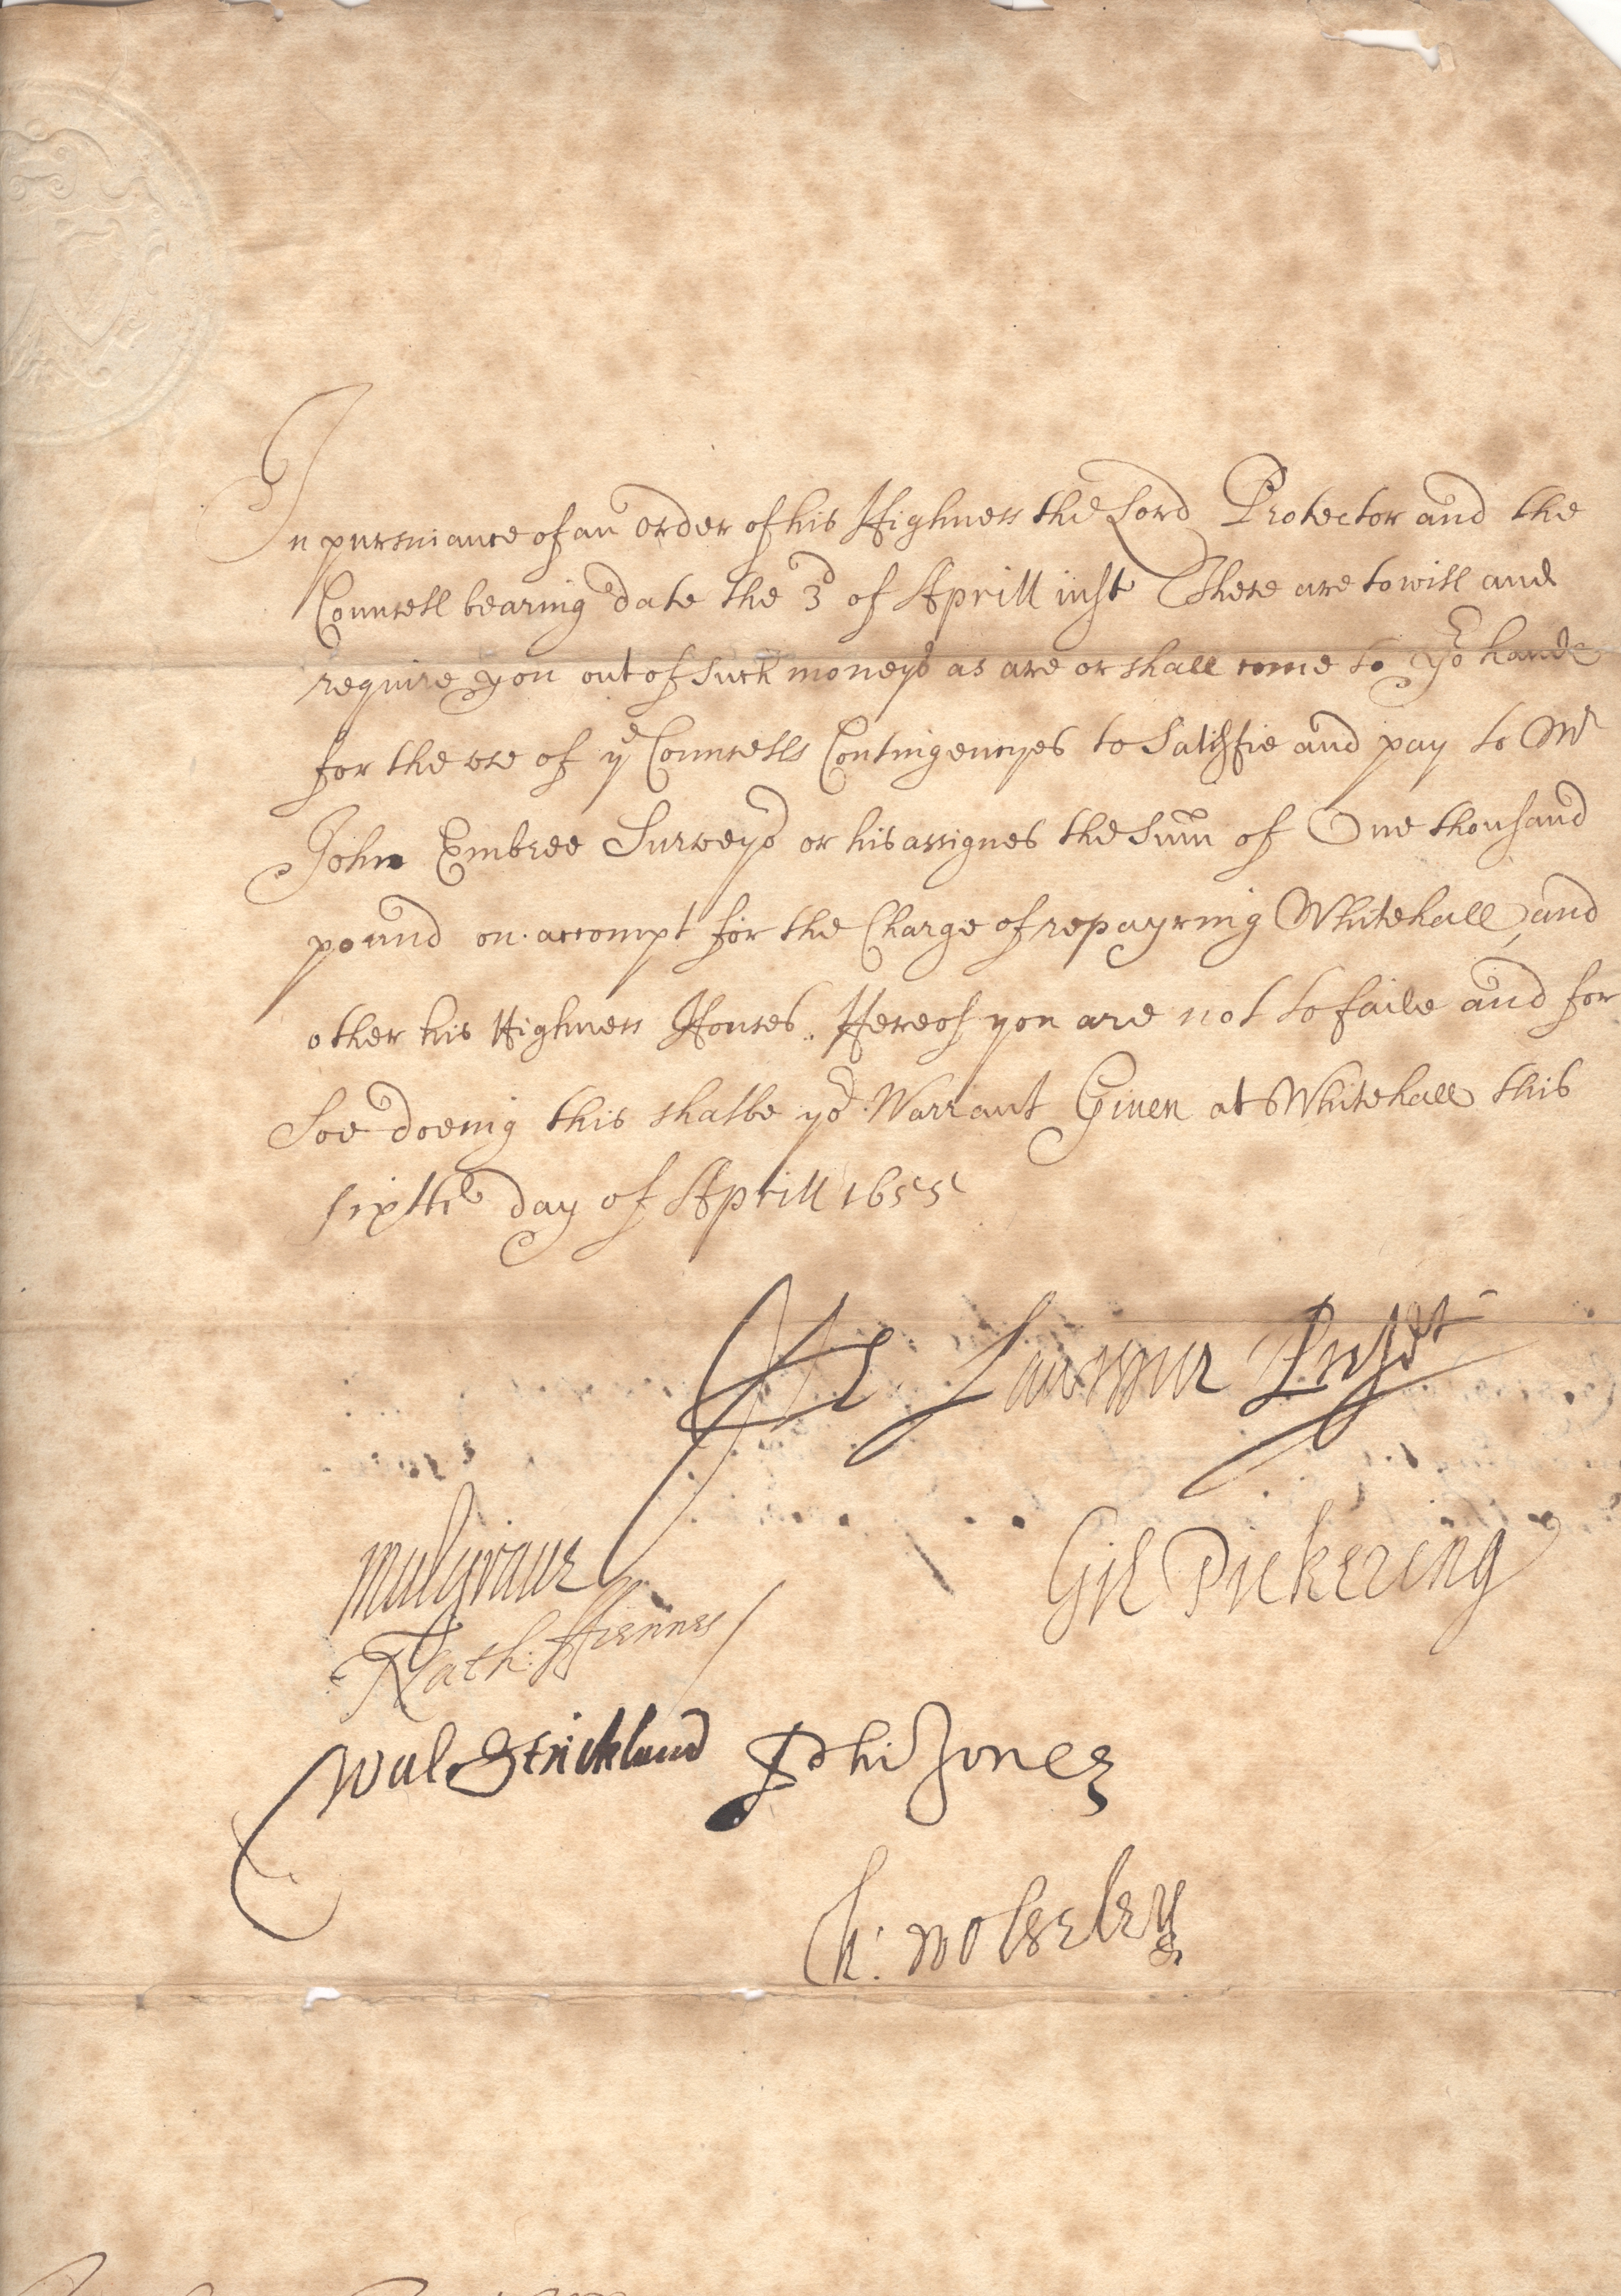 In pursuiance of an order of his Highness the Lord Protector and the
Councell bearing date the 3d of Aprill inst These are to will and
require you out of such moneys as are or shall come to yor hands
for the use of ye Councells Contingencyes to Satisfie and pay to Mr
John Embree Surveyor or his assignes the Sum of One thousand
pound on accompt for the Charge of repayring Whitehall, and
other his Highness Houses. Hereof you are not to faile and for
Soe doeing this shalbe yor Warrant Given at Whitehall this
sixth day of Aprill 1655
He. Lawrence Presdt
Mulgrave
Gil Pickering
Nath: Fiennes
Wal Strickland Phi Jones
Ch: Wolseley